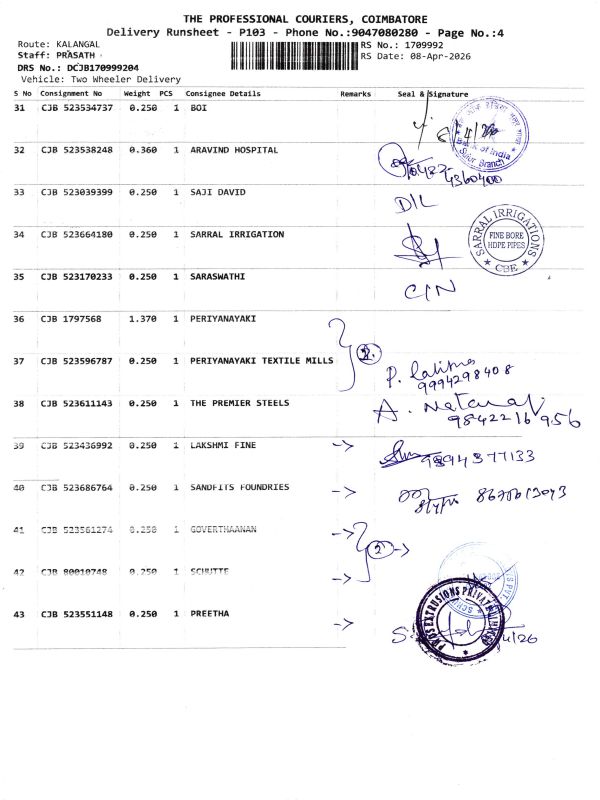 THE PROFESSIONAL COURIERS, COIMBATORE
Delivery Runsheet - P103 - Phone No.:9047080280 - Page No.:4
Route: KALANGAL
RS No.: 1709992
Staff: PRASATH
RS Date: 08-Apr-2026
DRS No.: DCJB170999204
Vehicle: Two Wheeler Delivery
S No Consignment No Weight PCS Consignee Details Remarks Seal & Signature
31 CJB 523534737 0.250 1 BOI
Bank of India
Sulur Branch
32 CJB 523538248 0.360 1 ARAVIND HOSPITAL
4360400
33 CJB 523039399 0.250 1 SAJI DAVID
D/L
34 CJB 523664180 0.250 1 SARRAL IRRIGATION
SARRAL IRRIGATIONS
FINE BORE
HDPE PIPES
CBE
35 CJB 523170233 0.250 1 SARASWATHI
C/N
36 CJB 1797568 1.370 1 PERIYANAYAKI
2.
37 CJB 523596787 0.250 1 PERIYANAYAKI TEXTILE MILLS
P.
9994298408
38 CJB 523611143 0.250 1 THE PREMIER STEELS
A. Nataraj
9842216956
39 CJB 523436992 0.250 1 LAKSHMI FINE
->
9894377133
40 CJB 523686764 0.250 1 SANDFITS FOUNDRIES
->
41 CJB 523561274 0.250 1 GOVERTHAANAN
->
2 ->
42 CJB 80010748 0.250 1 SCHUTTE
->
43 CJB 523551148 0.250 1 PREETHA
->
EXTRUSIONS PRIVATE LIMITED
4/26